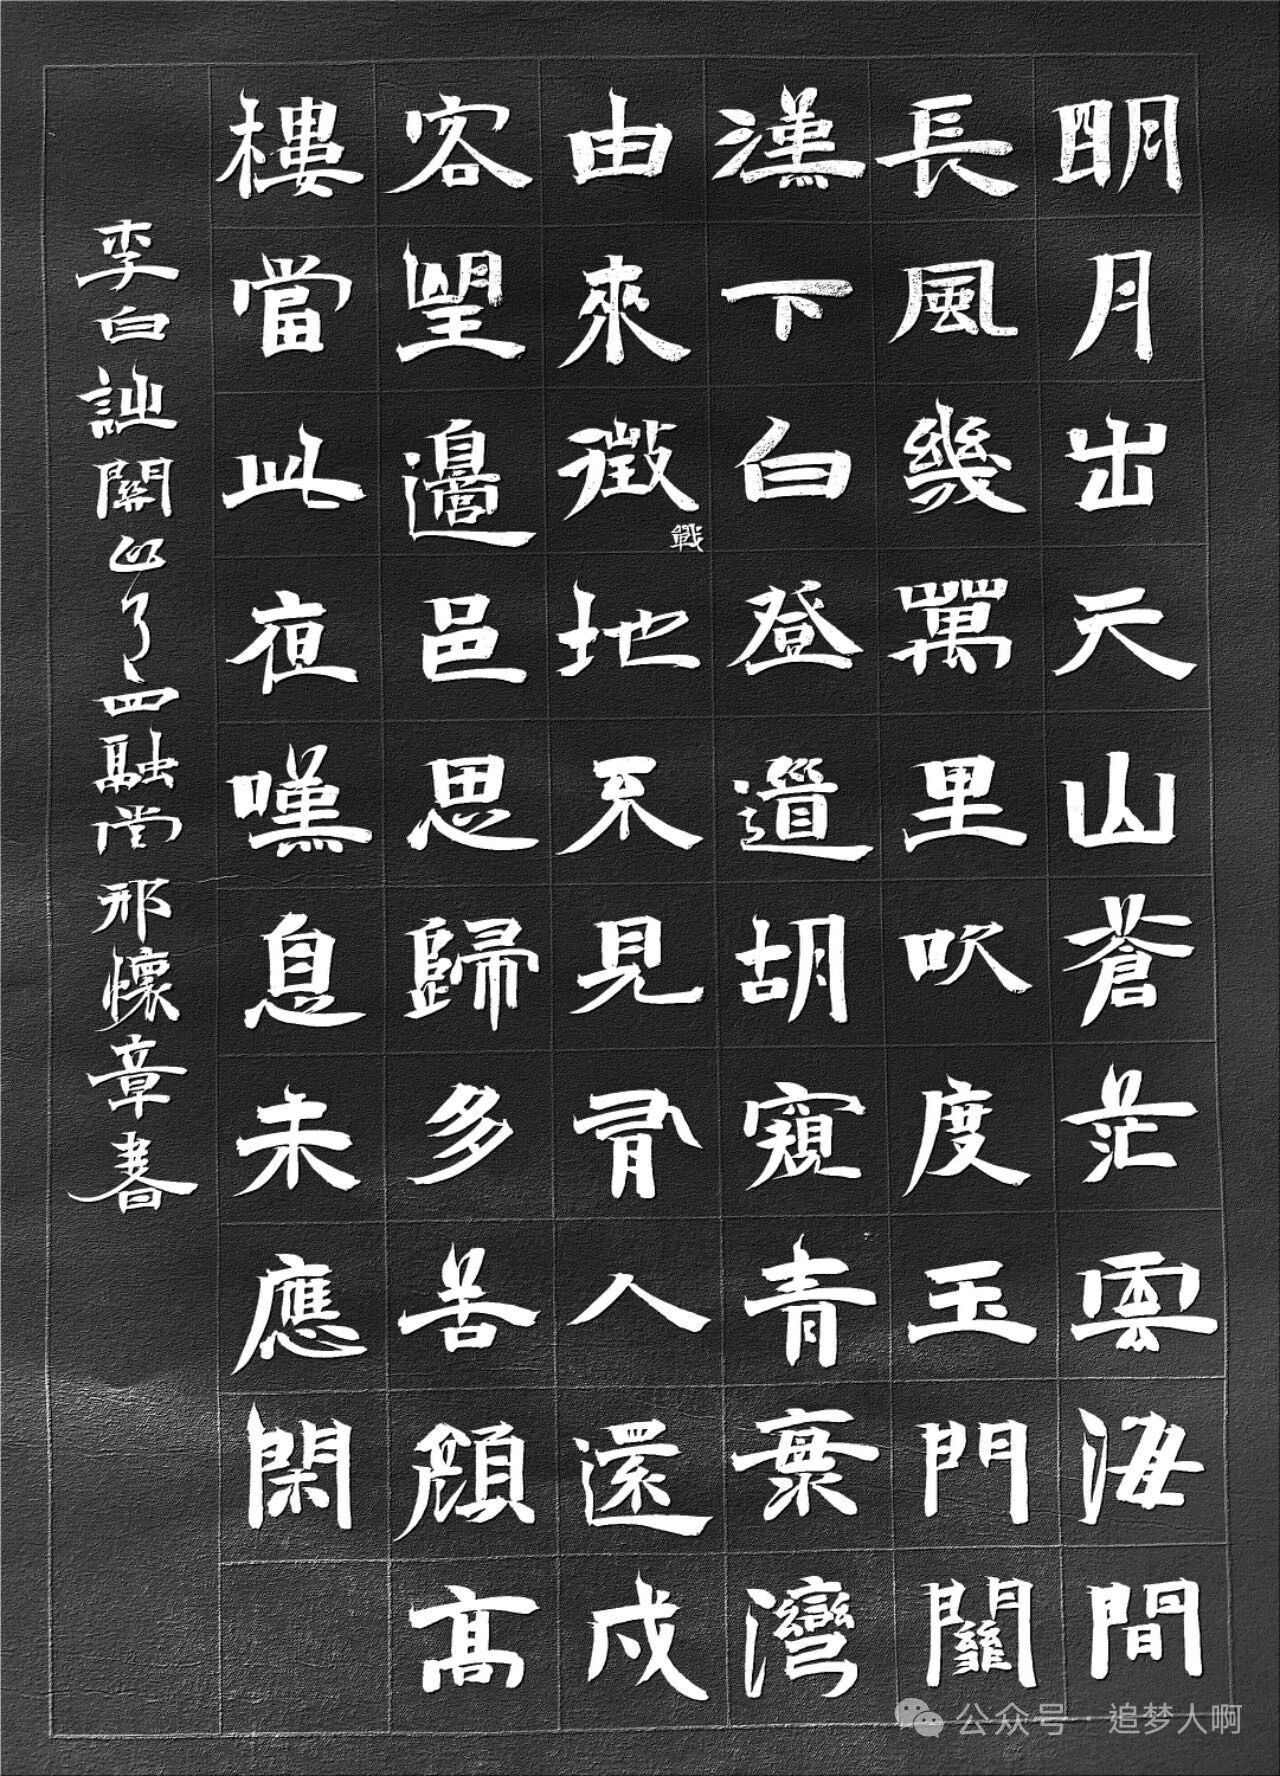 明月出天山蒼茫雲海間
長風幾萬里吹度玉門關
漢下白登道胡窺青海灣
由來征地不見有人還戍
客望邊邑思歸多苦顏高
樓當此夜嘆息未應閑
戰
李白詩關山月融堂邢懷章書
公众号·追梦人啊